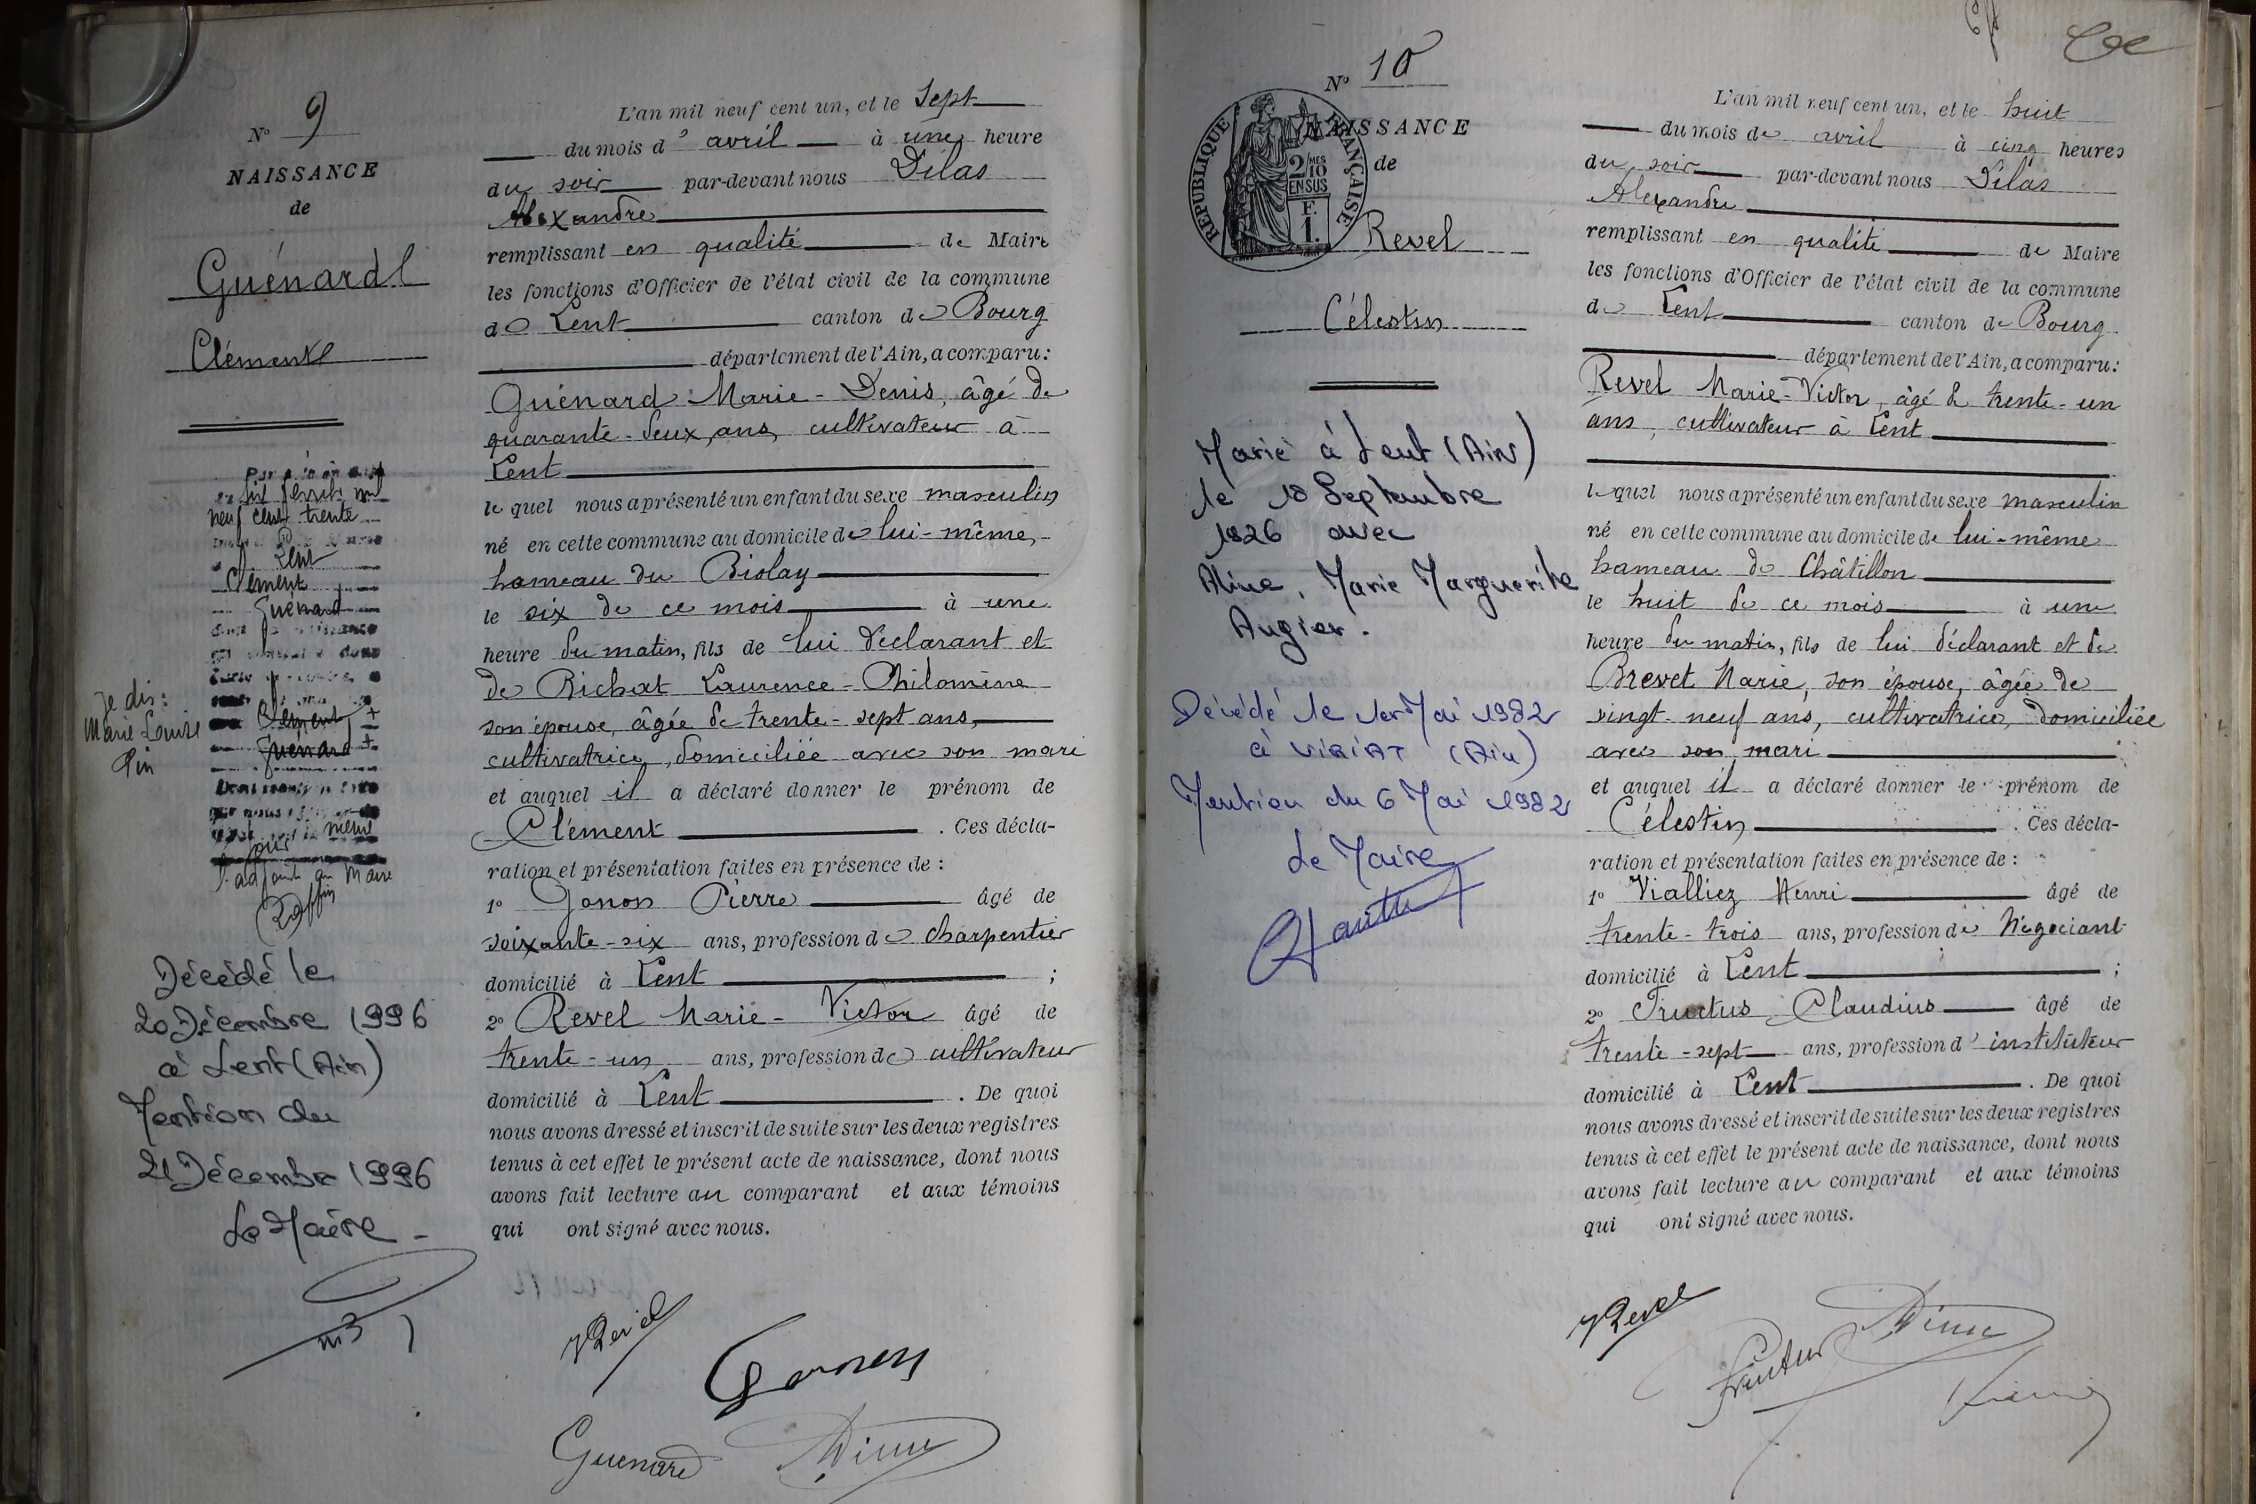 N° 9
NAISSANCE
de
Guénard
Clément
Lent
Clément
Guénard
je dis :
Marie-Louise
Pin
Clément +
Guénard +
même
jour
l'adjoint au Maire
Décédé le
20 Décembre 1996
à Lent (Ain)
Mention du
21 Décembre 1996
Le Maire
L'an mil neuf cent un, et le sept
du mois d' avril à une heure
du soir par-devant nous Dilas
Alexandre
remplissant en qualité de Maire
les fonctions d'Officier de l'état civil de la commune
de Lent canton de Bourg
département de l'Ain, a comparu :
Guénard Marie-Denis, âgé de
quarante-deux ans, cultivateur à
Lent
le quel nous a présenté un enfant du sexe masculin
né en cette commune au domicile de lui-même,
hameau du Biolay
le six de ce mois à une
heure du matin, fils de lui déclarant et
de Bichat Laurence-Philomène
son épouse, âgée de trente-sept ans,
cultivatrice, domiciliée avec son mari
et auquel il a déclaré donner le prénom de
Clément . Ces décla-
ration et présentation faites en présence de :
1° Gonon Pierre âgé de
soixante-six ans, profession de charpentier
domicilié à Lent ;
2° Revel Marie-Victor âgé de
trente-un ans, profession de cultivateur
domicilié à Lent . De quoi
nous avons dressé et inscrit de suite sur les deux registres
tenus à cet effet le présent acte de naissance, dont nous
avons fait lecture au comparant et aux témoins
qui ont signé avec nous.
VRevel
Gonon
Guenard
N° 10
NAISSANCE
de
REPUBLIQUE FRANÇAISE
2/10 MES
EN SUS
F.
1.
Revel
Célestin
Marié à Lent (Ain)
le 18 Septembre
1926 avec
Aline, Marie Marguerite
Augier.
Décédé le 1er Mai 1982
à VIRIAT (Ain)
Mention du 6 Mai 1982
Le Maire
L'an mil neuf cent un, et le huit
du mois de avril à cinq heures
du soir par-devant nous Dilas
Alexandre
remplissant en qualité de Maire
les fonctions d'Officier de l'état civil de la commune
de Lent canton de Bourg
département de l'Ain, a comparu :
Revel Marie-Victor, âgé de trente-un
ans, cultivateur à Lent
le quel nous a présenté un enfant du sexe masculin
né en cette commune au domicile de lui-même
hameau de Châtillon
le huit de ce mois à une
heure du matin, fils de lui déclarant et de
Brevet Marie, son épouse, âgée de
vingt-neuf ans, cultivatrice, domiciliée
avec son mari
et auquel il a déclaré donner le prénom de
Célestin . Ces décla-
ration et présentation faites en présence de :
1° Vialliez Henri âgé de
trente-trois ans, profession de Négociant
domicilié à Lent ;
2° Fructus Claudius âgé de
trente-sept ans, profession d' instituteur
domicilié à Lent . De quoi
nous avons dressé et inscrit de suite sur les deux registres
tenus à cet effet le présent acte de naissance, dont nous
avons fait lecture au comparant et aux témoins
qui ont signé avec nous.
VRevel
Fructus